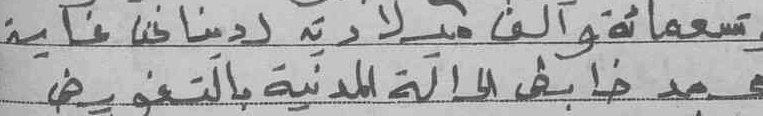 تسعمائة وألف ميلادية لدينا نحن
محمد ضابط الحالة المدنية بالتفويض